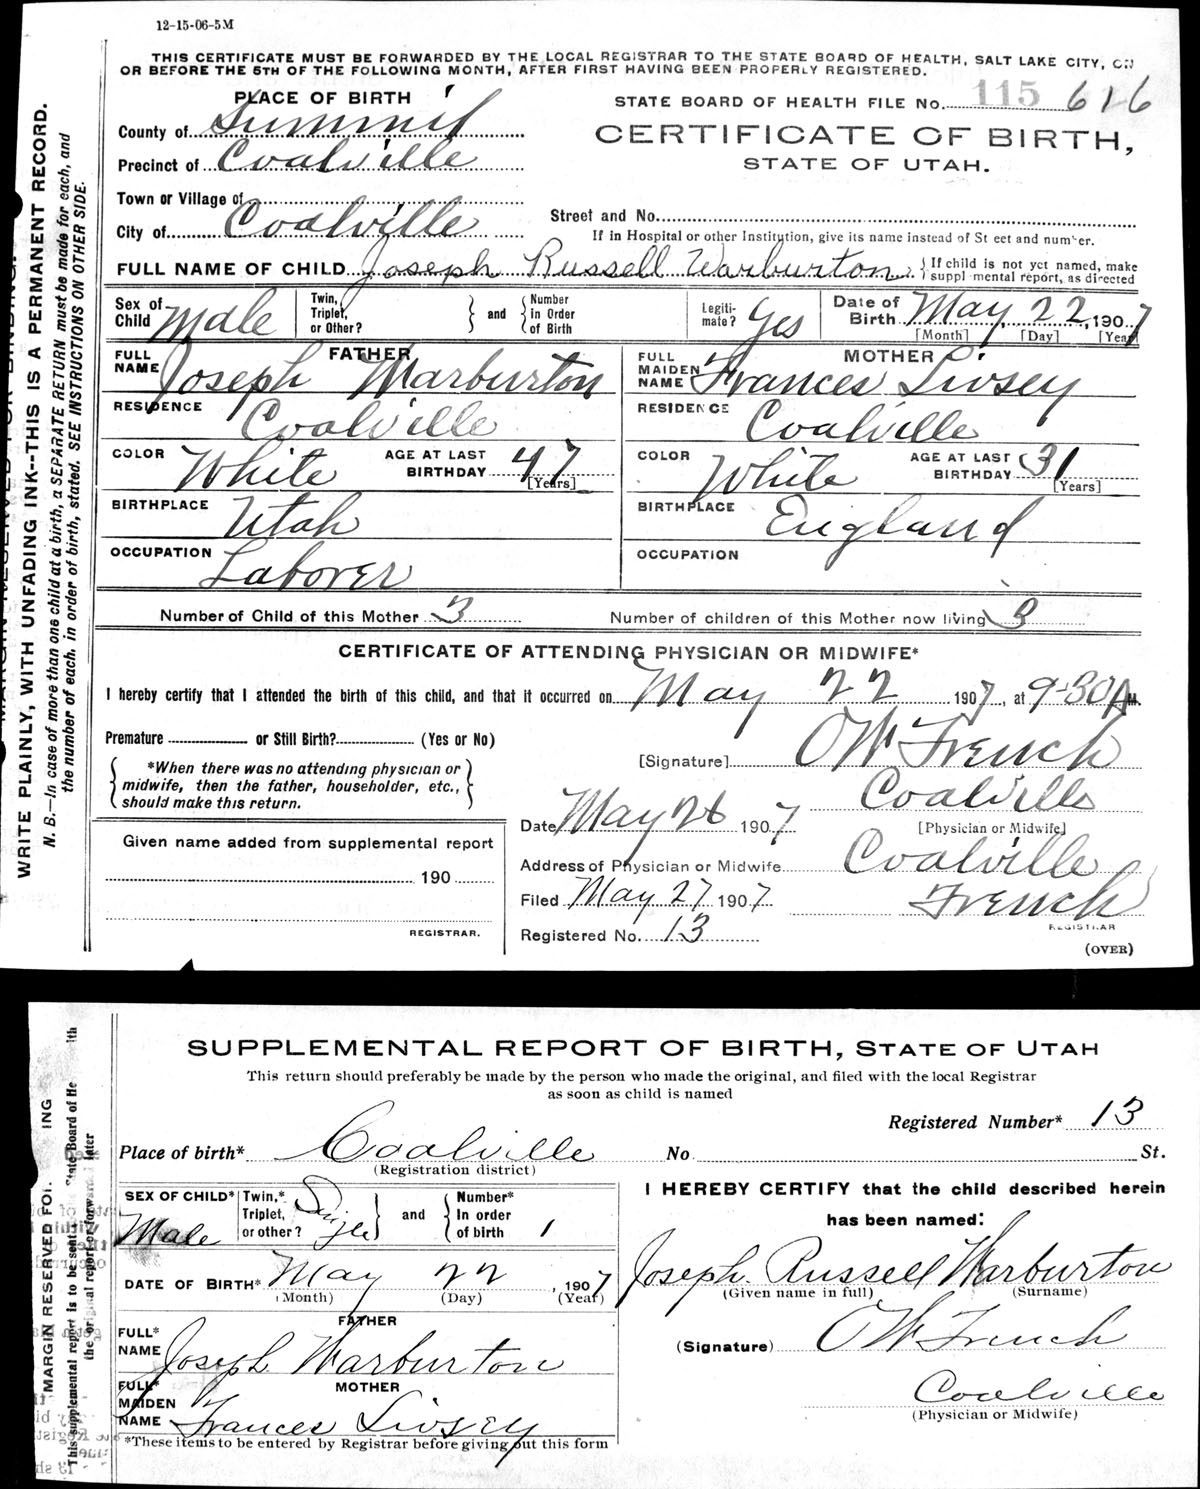 12-15-06-5M
THIS CERTIFICATE MUST BE FORWARDED BY THE LOCAL REGISTRAR TO THE STATE BOARD OF HEALTH, SALT LAKE CITY, ON
OR BEFORE THE 5TH OF THE FOLLOWING MONTH, AFTER FIRST HAVING BEEN PROPERLY REGISTERED.
PLACE OF BIRTH
STATE BOARD OF HEALTH FILE No. 115 616
County of Summit
CERTIFICATE OF BIRTH,
Precinct of Coalville
STATE OF UTAH.
Town or Village of
Street and No.
City of Coalville
If in Hospital or other Institution, give its name instead of St eet and number.
FULL NAME OF CHILD Joseph Russell Warburton. { If child is not yet named, make
suppl mental report, as directed
Sex of Child Male
Twin, Triplet, or Other? } and { Number in Order of Birth
Legiti-mate? Yes
Date of Birth May 22, 1907
[Month] [Day] [Year]
FATHER
FULL NAME Joseph Warburton
MOTHER
FULL MAIDEN NAME Frances Livsey
RESIDENCE Coalville
RESIDENCE Coalville
COLOR White AGE AT LAST BIRTHDAY 47 [Years]
COLOR White AGE AT LAST BIRTHDAY 31 [Years]
BIRTHPLACE Utah
BIRTHPLACE England
OCCUPATION Laborer
OCCUPATION
Number of Child of this Mother 3
Number of children of this Mother now living 3
CERTIFICATE OF ATTENDING PHYSICIAN OR MIDWIFE*
I hereby certify that I attended the birth of this child, and that it occurred on May 22 1907, at 9-30 AM.
Premature or Still Birth? (Yes or No)
[Signature] O W French
{ *When there was no attending physician or
midwife, then the father, householder, etc.,
should make this return. }
Coalville
Date May 26 1907
[Physician or Midwife]
Given name added from supplemental report
190
REGISTRAR.
Address of Physician or Midwife Coalville
Filed May 27 1907 French
REGISTRAR
Registered No. 13
(OVER)
WRITE PLAINLY, WITH UNFADING INK--THIS IS A PERMANENT RECORD.
N. B.—In case of more than one child at a birth, a SEPARATE RETURN must be made for each, and
the number of each, in order of birth, stated. SEE INSTRUCTIONS ON OTHER SIDE.
SUPPLEMENTAL REPORT OF BIRTH, STATE OF UTAH
This return should preferably be made by the person who made the original, and filed with the local Registrar
as soon as child is named
Registered Number* 13
Place of birth* Coalville No. St.
(Registration district)
SEX OF CHILD* Male
Twin,* Triplet, or other? Single } and { Number* In order of birth 1
DATE OF BIRTH* May 22, 1907
(Month) (Day) (Year)
FATHER
FULL* NAME Joseph Warburton
MOTHER
FULL* MAIDEN NAME Frances Livsey
*These items to be entered by Registrar before giving out this form
I HEREBY CERTIFY that the child described herein
has been named:
Joseph Russell Warburton
(Given name in full) (Surname)
(Signature) O W French
Coalville
(Physician or Midwife)
MARGIN RESERVED FOR ING
This supplemental report is to be sent State Board of He ith
the original report or forward later